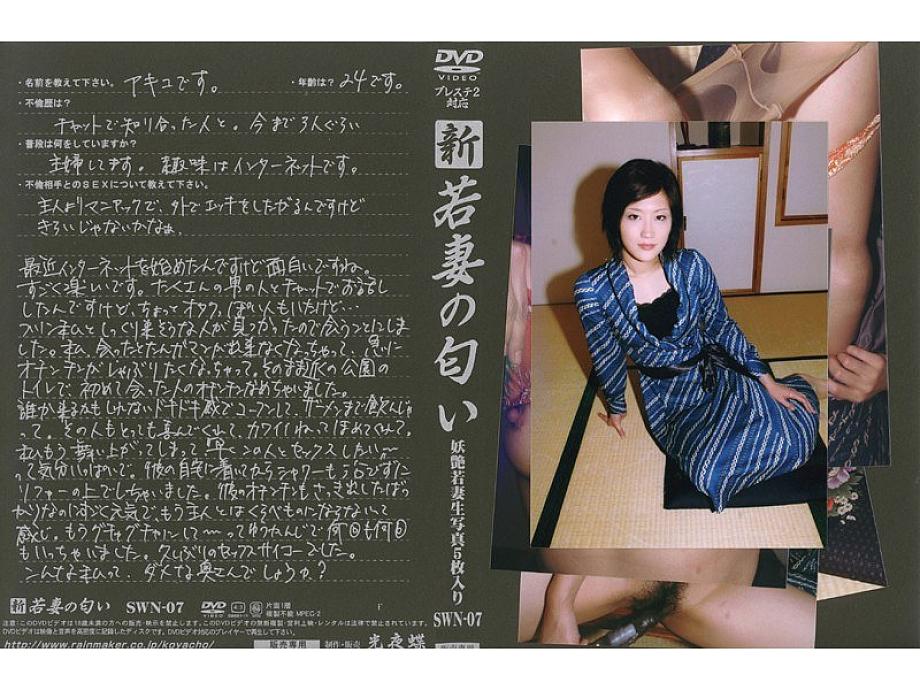 ・名前を教えて下さい。 アキュです。 ・年齢は？ 24です。
・不倫歴は？
チャットで知り合った人と。今まで3人ぐらい
・普段は何をしていますか？
主婦してます。趣味はインターネットです。
・不倫相手とのSEXについて教えて下さい。
主人よりマニアックで、外でエッチをしたがるんですけど
きらいじゃないかなぁ。
最近インターネットを始めたんですけど面白いですね。
すごく楽しいです。たくさんの男の人とチャットでお話し
したんですけど、ちょっとオタクっぽい人もいたけど…
私としっくり来そうな人が見つかったので会うことにしま
した。私、会ったとたんガマンが出来なくなっちゃって、急に
オチンチンがしゃぶりたくなっちゃって。そのまま近くの公園の
トイレで、初めて会った人のオチンチンなめちゃいました。
誰か来るかもしれないドキドキ感でコーフンして、ザーメンまで飲んじゃ
って。その人もとっても喜んでくれて、カワイイねってほめてくれて。
私もう舞い上がってしまって早くこの人とセックスしたい〜
って気分いっぱいで。彼の自宅に着いてからシャワーもあびずに
ソファーの上でしちゃいました。彼のオチンチンもさっき出したばっ
かりなのにすごく元気で、もう主人とはくらべものにならないって
感じ。もうグチャグチャにして〜ってゆうかんじで何回も何回
もいっちゃいました。久しぶりのセックスサイコーでした。
こんな私って、ダメな奥さんでしょうか？
新 若妻の匂い SWN-07 DVD VIDEO 4:3 片面1層
複製不能 MPEG-2
注意:このDVDビデオは18歳未満の方への販売・映示を禁止します。このDVDビデオの無断複製・営利上映・レンタルは法律で禁止されています。
DVDビデオは映像と音声を高密度に記録したディスクです。DVDビデオ対応のプレイヤーで再生して下さい。
http://www.rainmaker.co.jp/koyacho/ 販売専用 制作・販売 光夜蝶
DVD
VIDEO
プレステ2
対応
新 若妻の匂い
妖艶若妻生写真5枚入り
SWN-07